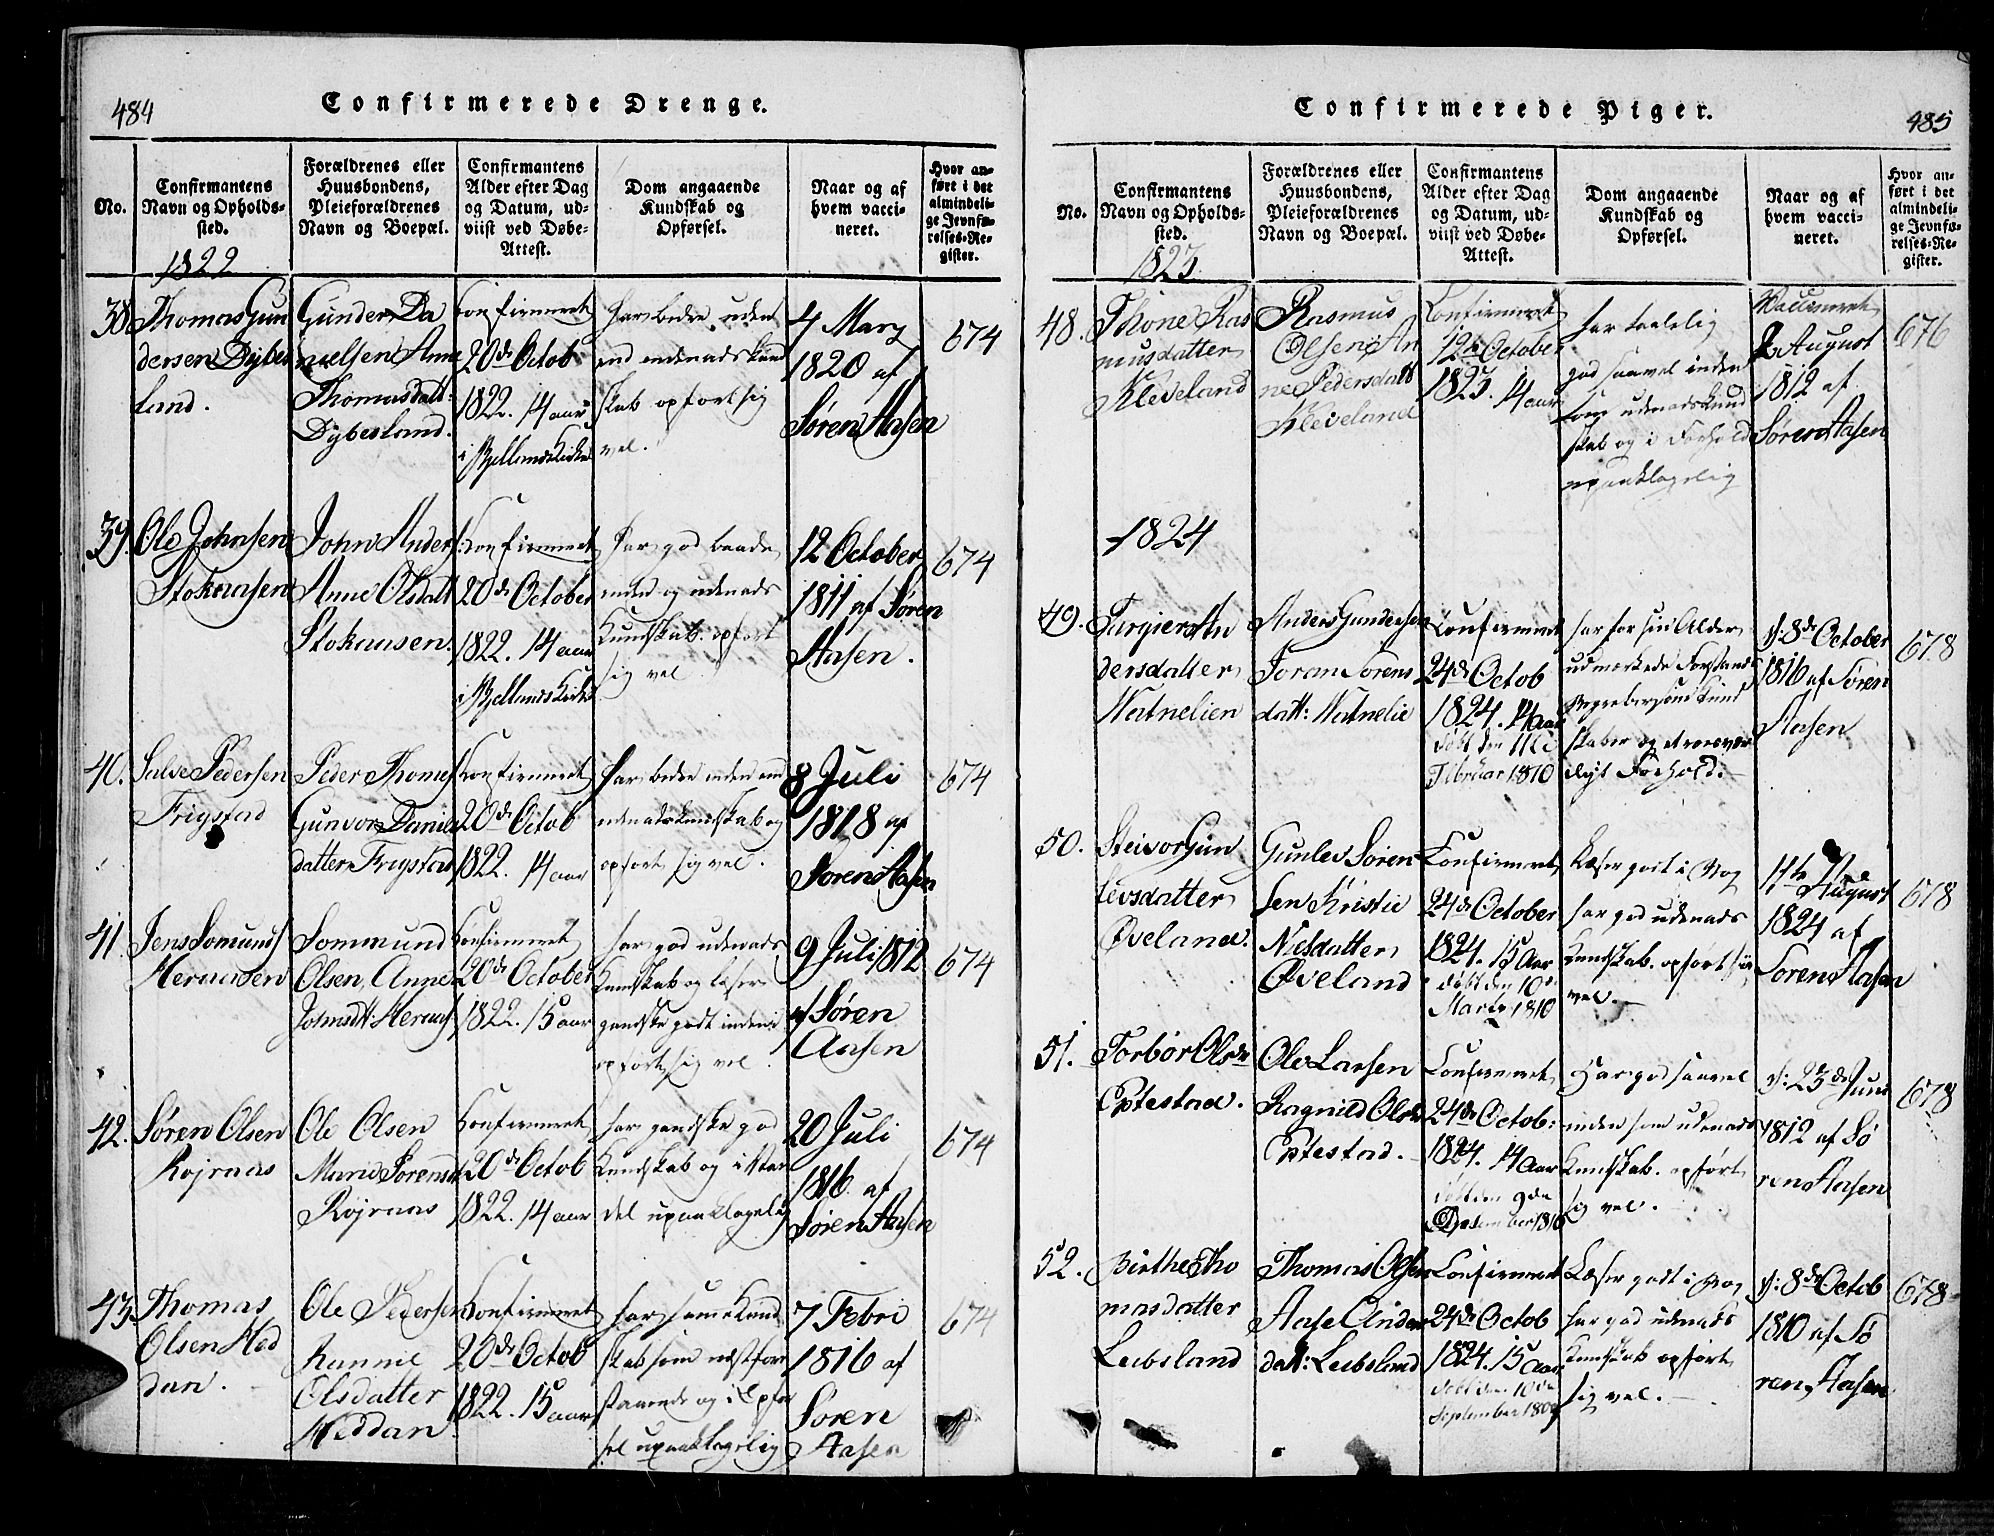 484
Confirmerede Drenge.
No.
Confirmantens
Navn og Opholds-
sted.
Forældrenes eller
Huusbondens,
Pleieforældrenes
Navn og Boepæl.
Confirmantens
Alder efter Dag
og Datum, ud-
viist ved Døbe-
Attest.
Dom angaaende
Kundskab og
Opførsel.
Naar og af
hvem vacci-
neret.
Hvor an-
ført i det
almindeli-
ge Jevnfø-
relses-Re-
gister.
1822
38.
Thomas Gun
dersen Dybes
land.
Gunder Da
nielsen Anne
Thomasdatt:
Dybesland.
Confirmeret
20de Octob
1822. 14 aar
i Bjellands Kirke
har bedre uden
end indenads Kund
skab opført sig
vel.
4 Marz
1820 af
Søren Aasen
674
39.
Ole Johnsen
Stokaasen
John Anders:
Anne Olsdatt
Stokaasen.
Confirmeret
20de October
1822. 14 aar
i Bjellands Kirke
har god baade
inden og udenads
Kundskab. opført
sig vel
12 October
1811 af Søren
Aasen.
674
40.
Salve Pedersen
Frigstad
Peder Thomes
Gunvor Daniels
datter Frigstad
Confirmeret
20de Octob
1822. 14 aar
har bedre inden end
udenads Kundskab og
opført sig vel.
8 Juli
1818 af
Søren Aasen
674
41.
Jens Somunds
Heraasen
Sommund
Olsen, Anne
Johnsdt: Heraas
Confirmeret
20de October
1822. 15 aar
har god udenads
Kundskab og læser
gandske godt inden i
opført sig vel
9 Juli 1812
af Søren
Aasen
674
42.
Søren Olsen
Røjraas
Ole Olsen
Marie Sørensd
Røjraas
Confirmeret
20de Octob
1822. 14 aar
har gandske god
Kundskab og i Van
del upaaklagelig
20 Juli
1816. af
Søren Aasen
674
43.
Thomas
Olsen Hed
dan.
Ole Pedersen
Rannie
Olsdatter
Heddan
Confirmeret
20de Octob
1822. 15 aar
har samme Kund
skab som næstfore
staaende og i Opfør
sel upaaklagelig
7 Febri
1816 af
Søren
Aasen
674
485
Confirmerede Piger.
No.
Confirmantens
Navn og Opholds-
sted.
Forældrenes eller
Huusbondens,
Pleieforældrenes
Navn og Boepæl.
Confirmantens
Alder efter Dag
og Datum, ud-
viist ved Døbe-
Attest.
Dom angaaende
Kundskab og
Opførsel.
Naar og af
hvem vacci-
neret.
Hvor an-
ført i det
almindeli-
ge Jevnfø-
relses-Re-
gister.
1823
48.
Thone Ras
musdatter
Kleveland
Rasmus
Olsen An
ne Pedersdatt
Kleveland
Confirmeret
12te October
1823. 14 aar
har taalelig
god saavel inden
som udenads Kund
skab og i Forhold
upaaklagelig
Vaccineret
2 August
1812 af
Søren Aasen
676
1824
49.
Targier An
dersdatter
Natnelien
Anders Gundersen
Joran Sørens
datt: Natnelie
Confirmeret
24de Octob
1824. 14 aar
født den 11te
Februar 1810
har for sin Alder
udmærkede Forstands
Begreber, sund Kund
skaber og et roevær
digt Forhold.
d: 8de October
1816 af Søren
Aasen
678
50.
Steivor Gun
levsdatter
Øveland.
Gunlev Søren
sen Kristie
Nielsdatter
Øveland
Confirmeret
24de October
1824. 15 Aar
født den 10de
Marts 1810
Læser godt i Bog
har god udenads
Kundskab. opført sig
vel.
11te August
1824 af
Søren Aasen
678
51.
Torbor Olsdr
Eptestad.
Ole Larsen
Ragnild Olsdr
Eptestad.
Confirmeret
24de Octob:
1824. 14 Aar
født den 9da
December 1810
Har god saavel
inden som udenads
Kundskab. opført
sig vel.
d: 23de Juni
1812 af Sø
ren Aasen
678
52.
Birthe Tho
masdatter
Leibsland
Thomas Olsen
Aase Anders
datt: Leibsland
Confirmeret
24de Octob
1824. 15 Aar
født den 10de
September 1809
Læser godt i Bog
har god udenads
Kundskab opført
sig vel.
d: 8de Octob
1810 af Sø
ren Aasen
678